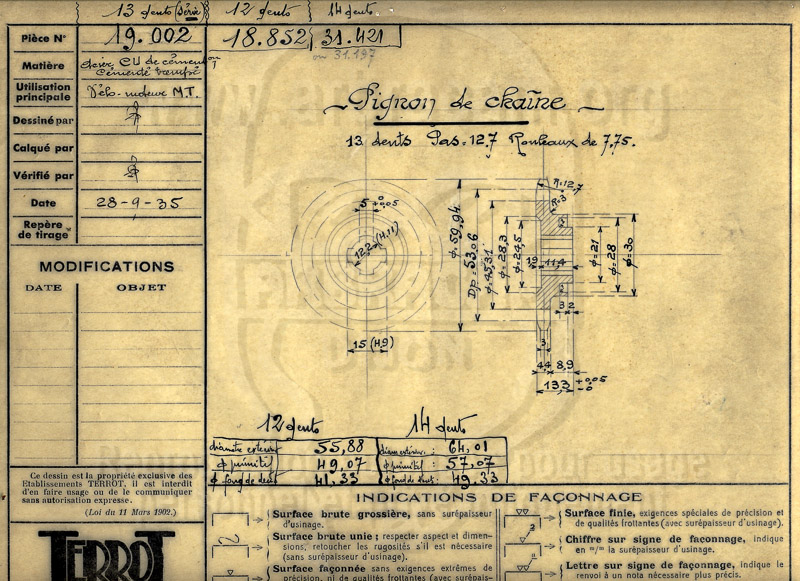 13 dents (Série) 12 dents 14 dents
Pièce N° 19.002 18.852 31.421
ou 31.197
Matière acier CU de cémentation
Cémenté trempé
Utilisation
principale Vélo-moteur M.T.
Dessiné par
Calqué par
Vérifié par
Date 28-9-35
Repère
de tirage
MODIFICATIONS
DATE OBJET
Pignon de chaîne
13 dents Pas=12,7 Rouleaux de 7,75.
5 +0,05
0
12,2 (H.11)
15 (H.9)
ϕ=59,94
Dp=53,06
ϕ=45,31
ϕ=28,3
ϕ=24,5
R=12,7
R=3
1,9 11,4
ϕ=21
ϕ=28
ϕ=30
3 2
3
4,4 8,9
13,3 +0,05
-0
12 dents 14 dents
diamètre extérieur 55,88 diam. extérieur: 64,01
ϕ primitif 49,07 ϕ primitif: 57,07
ϕ fond de dent 41,33 ϕ fond de dent: 49,33
Ce dessin est la propriété exclusive des
Etablissements TERROT, il est interdit
d'en faire usage ou de le communiquer
sans autorisation expresse.
(Loi du 11 Mars 1902.)
TERROT
INDICATIONS DE FAÇONNAGE
Surface brute grossière, sans surépaisseur
d'usinage.
Surface brute unie; respecter aspect et dimen-
sions, retoucher les rugosités s'il est nécessaire
(sans surépaisseur d'usinage).
Surface façonnée sans exigences extrêmes de
précision, ni de qualités frottantes (avec surépais-
Surface finie, exigences spéciales de précision et
de qualités frottantes (avec surépaisseur d'usinage).
Chiffre sur signe de faconnage, indique
en m/m la surépaisseur d'usinage.
Lettre sur signe de façonnage, indique le
renvoi à un nota nécessaire plus précis